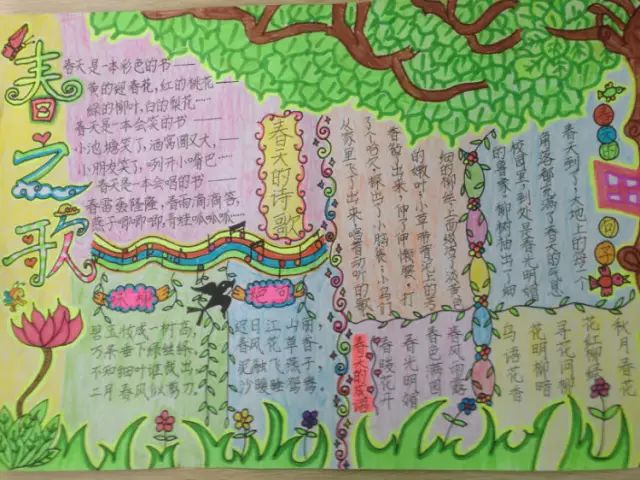 春之歌
春天是一本彩色的书——
黄的迎春花,红的桃花——
绿的柳叶,白的梨花……
春天是一本会笑的书——
小池塘笑了,酒窝圆又大,——
小朋友笑了,咧开小嘴巴……
春天是一本会唱的书——
春雷轰隆隆,春雨滴滴答,
燕子唧唧唧,青蛙呱呱呱……
春天的诗歌
春天到了,大地上的每一个
角落都充满了春天的气息
校园里,到处是春光明媚
的景象,柳树抽出了细
细的柳丝,上面缀满了淡黄色
的嫩叶;小草带着泥土的芳
香钻了出来,伸了伸懒腰,打
了个哈欠,探出了小脑袋;小鸟们
从家里飞了出来,唱着动听的歌
咏柳
碧玉妆成一树高,
万条垂下绿丝绦。
不知细叶谁裁出,
二月春风似剪刀。
绝句
迟日江山丽
春风花草香
泥融飞燕子
沙暖睡鸳鸯。
春天的成语
秋月春花
花红柳绿
寻花问柳
花明柳暗
鸟语花香
春风雨露
春色满园
春光明媚
春暖花开